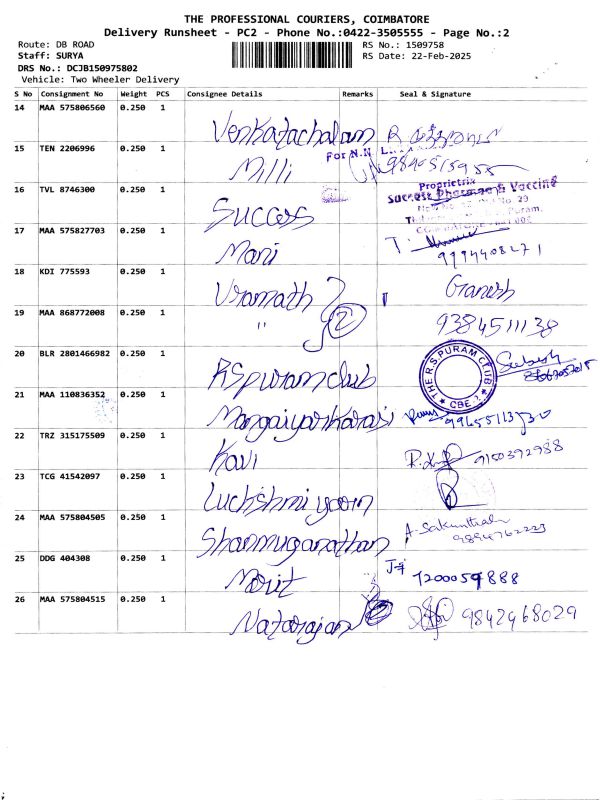 THE PROFESSIONAL COURIERS, COIMBATORE
Delivery Runsheet - PC2 - Phone No.:0422-3505555 - Page No.:2
Route: DB ROAD RS No.: 1509758
Staff: SURYA RS Date: 22-Feb-2025
DRS No.: DCJB150975802
Vehicle: Two Wheeler Delivery
S No Consignment No Weight PCS Consignee Details Remarks Seal & Signature
14 MAA 575806560 0.250 1 Venkatachalam R
15 TEN 2206996 0.250 1 Milli For N.N 9840515955
16 TVL 8746300 0.250 1 Success Proprietrix
Success Pharma & Vaccine
No. 29
Puram,
17 MAA 575827703 0.250 1 Mani T. 9994408271
18 KDI 775593 0.250 1 Viramath Ganesh
19 MAA 868772008 0.250 1 " 2 9384511138
20 BLR 2801466982 0.250 1 RSpuramclub THE R.S.PURAM CLUB CBE.2 Subash
21 MAA 110836352 0.250 1 Mangaiyarkarasi
22 TRZ 315175509 0.250 1 Kavi 9150392988
23 TCG 41542097 0.250 1 Luckshmi yaarn
24 MAA 575804505 0.250 1 Shanmuganathan A. Sakunthala
9894762223
25 DDG 404308 0.250 1 Morit 7200059888
26 MAA 575804515 0.250 1 Natarajan 9842468029